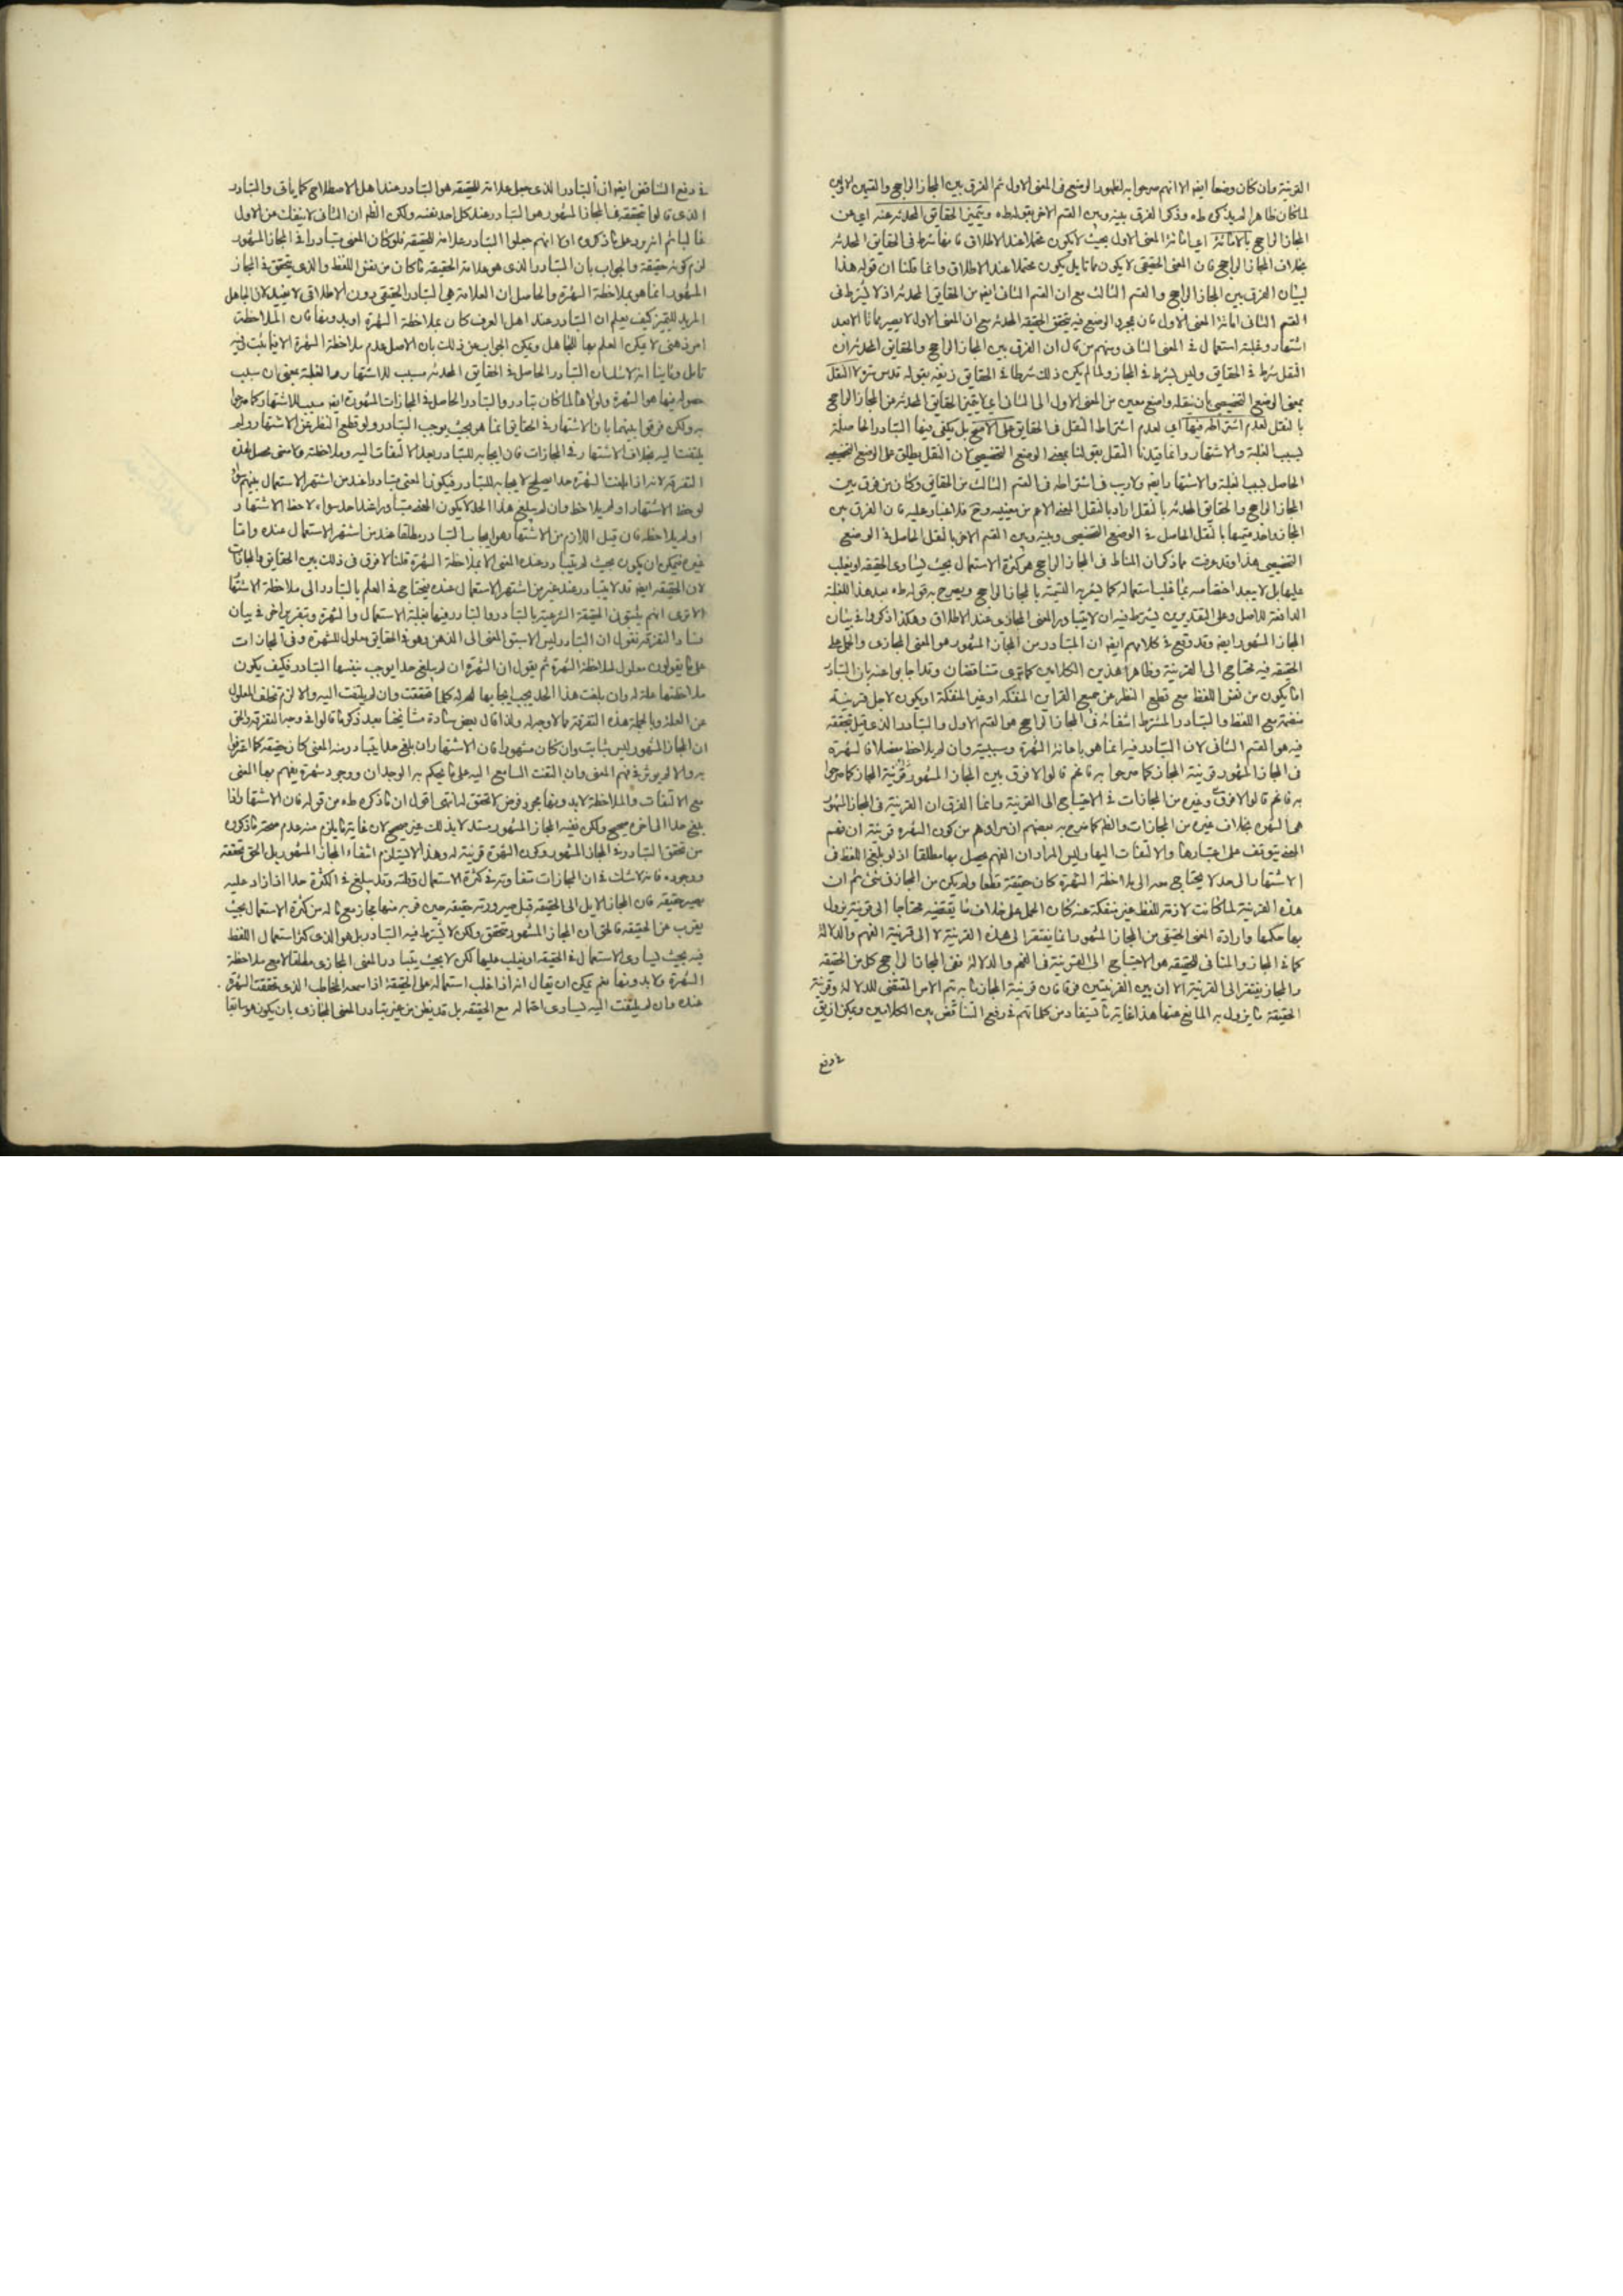 القرينة وان كان وضعا ايضا الا انهم صرحوا به لظهور الوضعي في المعنى الاول ثم الفرق بين المجاز الراجح والقسمين الاولين
لما كان ظاهرا لم يذكره طه وذكر الفرق بينه وبين القسم الاخر بقوله طه ويتميز الحقايق المحدثة عنه اي عن
المجاز الراجح بالاماتة اي اماتة المعنى الاول بحيث لا يكون محتملا عند الاطلاق فانها شرط في الحقايق المحدثة
بخلاف المجاز الراجح فان المعنى الحقيقي لا يكون مماتا بل يكون محتملا عند الاطلاق وانما قلنا ان قوله هذا
لبيان الفرق بين المجاز الراجح والقسم الثالث مع ان القسم الثاني ايضا من الحقايق المحدثة اذ لا يشترط في
القسم الثاني اماتة المعنى الاول فان بمجرد الوضع فيه يتحقق الحقيقة المحدثة مع ان المعنى الاول لا يصير مماتا الا بعد
اشتهار وغلبة استعمال في المعنى الثاني ومنهم من قال ان الفرق بين المجاز الراجح والحقايق المحدثة ان
النقل شرط في الحقايق وليس بشرط في المجاز ولما لم يكن ذلك شرطا في الحقايق زيفه بقوله قدس سره لا النقل
بمعنى الوضع التخصيصي بان ينقله واضع معين من المعنى الاول الى الثاني اي لا يتميز الحقايق المحدثة من المجاز الراجح
بالنقل لعدم اشتراطه فيها اي لعدم اشتراط النقل في الحقايق على الاصح بل يكفي فيها التبادر الحاصلة
بسبب الغلبة والاشتهار وانما قيدنا النقل بقولنا بمعنى الوضع التخصيصي لان النقل يطلق على الوضع التخصصي
الحاصل بسبب الغلبة والاشتهار ايضا ولا ريب في اشتراطه في القسم الثالث من الحقايق وكان من فرق بين
المجاز الراجح والحقايق المحدثة بالنقل اراد بالنقل المعنى الاعم من معنييه وح فلا غبار عليه فان الفرق بين
المجاز واحد قسميها بالنقل الحاصل في الوضع التخصيصي وبينه وبين القسم الاخر بالنقل الحاصل في الوضع
التخصصي هذا وقد عرفت مما ذكر ان المناط في المجاز الراجح هو كثرة الاستعمال بحيث يساوى الحقيقة او يغلب
عليها بل لا يبعد اختصاصه بما غلب استعماله كما يشعر به التسمية بالمجاز الراجح ويصرح به قوله طه بعد هذا الغلبة
الدافعة للاصل وعلى التقديرين يشترط فيه ان لا يتبادر المعنى المجازى عند الاطلاق وهكذا ذكروا في بيان
المجاز المشهور ايضا وقد وقع في كلامهم ايضا ان المتبادر من المجاز المشهور هو المعنى المجازى والحمل على
الحقيقة فيه محتاج الى القرينة وظاهر هذين الكلامين كما ترى متناقضان وقد اجابوا عنه بان التبادر
اما يكون من نفس اللفظ مع قطع النظر عن جميع القراين المنفكة او غير المنفكة او يكون لاجل قرينة
منضمة مع اللفظ والتبادر المشترط انتفائه في المجاز الراجح هو القسم الاول والتبادر الذي قيل بتحققه
فيه هو القسم الثاني لان التبادر فيه انما هو باعانة الشهرة وسببيته وان لم يلاحظ مفصلا فالشهرة
في المجاز المشهور قرينة المجاز كما صرحوا به فانهم قالوا لا فرق بين المجاز المشهور قرينة المجاز كما صرحوا
به فانهم قالوا لا فرق وغيره من المجازات في الاحتياج الى القرينة وانما الفرق ان القرينة في المجاز المشهور
هي الشهرة بخلاف غيره من المجازات والظ كما صرح به بعضهم ان مرادهم من كون الشهرة قرينة ان فهم
المعنى يتوقف على اعتبارها والالتفات اليها وليس المراد ان الفهم يحصل بها مطلقا اذ لو بلغ اللفظ في
الاشتهار الى حد لا يحتاج معه الى ملاحظة الشهرة كان حقيقة قطعا ولم يكن من المجاز في شئ ثم ان
هذه القرينة لما كانت لازمة للفظ غير منفكة عنه كان الحمل على خلاف ما يقتضيه محتاجا الى قرينة يزول
بها حكمها وارادة المعنى الحقيقي من المجاز المشهور انما يفتقر الى هذه القرينة لا الى قرينة الفهم والدلالة
كما في المجاز والمنافي للحقيقة هو الاحتياج الى القرينة في الفهم والدلالة ففي المجاز الراجح كل من الحقيقة
والمجاز يفتقر الى القرينة الا ان بين القرينتين فرقا فان قرينة المجاز ما به يتم الامر المقتضي للدلالة وقرينة
الحقيقة ما يزول به المانع عنها هذا غاية ما يستفاد من كلماتهم في رفع التناقض بين الكلامين ويمكن ان يق
في رفع
في رفع التناقض ايضا ان التبادر الذي جعل علامة للحقيقة هو التبادر عند اهل الاصطلاح كما ياتي والتبادر
الذي قالوا بتحققه في المجاز المشهور هو التبادر عند كل احد نفسه ولكن الظ ان الثاني لا ينفك عن الاول
غالبا ثم انه يرد على ما ذكروه اولا انهم جعلوا التبادر علامة للحقيقة فلو كان المعنى متبادرا في المجاز المشهور
لزم كونه حقيقة والجواب بان التبادر الذي هو علامة الحقيقة ما كان من نفس اللفظ والذي يتحقق في المجاز
المشهور انما هو بملاحظة الشهرة والحاصل ان العلامة هي التبادر الحقيقي دون الاطلاقي لا يفيد لان الجاهل
المريد للتميز كيف يعلم ان التبادر عند اهل العرف كان بملاحظة الشهرة او بدونها فان الملاحظة
امر ذهني لا يمكن العلم بها للجاهل ويمكن الجواب عن ذلك بان الاصل عدم ملاحظة الشهرة الا فيما يثبت وفيه
تامل وثانيا انه لا شك ان التبادر الحاصل في الحقايق المحدثة مسبب للاشتهار والغلبة بمعنى ان سبب
حصوله فيها هو الشهرة ولولاها لما كان يتبادر والتبادر الحاصل في المجازات المشهورة ايضا مسبب للاشتهار كما صرحوا
به ولكن فرقوا بينهما بان الاشتهار في الحقايق انما هو بحيث يوجب التبادر ولو قطع النظر عن الاشتهار ولم
يلتفت اليه بخلاف الاشتهار في المجازات فان ايجابه للتبادر بعد الالتفات اليه وملاحظته ولا معنى محصل لهذه
التفرقة لانه اذا بلغت الشهرة حدا يصلح لايجابه للتبادر فيكون المعنى متبادرا عند من اشتهر الاستعمال بينهم سواء
لوحظ الاشتهار او لم يلاحظ وان لم يبلغ هذا الحد لا يكون المعنى متبادرا عند احد سواء لاحظ الاشتهار
او لم يلاحظه فان قيل اللازم من الاشتهار هو ايجاب التبادر مطلقا عند من اشتهر الاستعمال عنده واما
غيره فيمكن ان يكون بحيث لم يتبادر عنده المعنى الا بملاحظة الشهرة قلنا لا فرق في ذلك بين الحقايق والمجازات
لان الحقيقة ايضا قد لا يتبادر عند غير من اشتهر الاستعمال عنده فيحتاج في العلم بالتبادر الى ملاحظة الاشتهار
الا ترى انهم يثبتون الحقيقة الشرعية بالتبادر والتبادر فيها بغلبة الاستعمال والشهرة وبتقرير اخر في بيان
فساد التفرقة نقول ان التبادر ليس الا سبق المعنى الى الذهن وهو في الحقايق معلول للشهرة وفي المجازات
على ما يقولون معلول لملاحظة الشهرة ثم نقول ان الشهرة ان لم يبلغ حدا يوجب بنفسها التبادر فكيف يكون
ملاحظتها علة له وان بلغت هذا الحد يجب ايجابها لمعلوله كلما تحققت وان لم يلتفت اليه والا لزم تخلف المعلول
عن العلة وبالجملة هذه التفرقة مما لا وجه له ولذا قال بعض سادة مشايخنا بعد ذكر ما قالوا في وجه التفرقة والحق
ان المجاز المشهور ليس بثابت وان كان مشهورا فان الاشتهار ان بلغ حدا يتبادر منه المعنى كان حقيقة كما اعترفوا
به والا لم يؤثر في فهم المعنى وان التفت السامع اليه على ما يحكم به الوجدان ووجود شهرة يفهم معها المعنى
مع الالتفات والملاحظة لا بدونها مجرد فرض لا تحقق له انتهى اقول ان ما ذكره طه من قوله فان الاشتهار اذا
بلغ حدا الى اخره صحيح ولكن نفيه المجاز المشهور مستدلا بذلك غير صحيح لان غاية ما يلزم منه عدم صحة ما ذكروه
من تحقق التبادر في المجاز المشهور وكون الشهرة قرينة له وهذا لا يستلزم انتفاء المجاز المشهور بل الحق تحققه
ووجوده فانه لا شك في ان المجازات متفاوتة في كثرة الاستعمال وقلته وقد يبلغ في الكثرة حدا اذا زاد عليه
يصير حقيقة فان المجاز الايل الى الحقيقة قبل صيرورته حقيقة حين قربه منها مجاز مع ما له من كثرة الاستعمال بحيث
يقرب من الحقيقة فالحق ان المجاز المشهور متحقق ولكن لا يشترط فيه التبادر بل هو الذي كثر استعمال اللفظ
فيه بحيث يساوى الاستعمال في الحقيقة او يغلب عليها لكن لا بحيث يتبادر المعنى المجازى مطلقا لا مع ملاحظة
الشهرة ولا بدونها نعم يمكن ان يقال انه اذا غلب استعماله على الحقيقة اذا سمعه المخاطب الذي تحققت الشهرة
عنده وان لم يلتفت اليه يساوى احتماله مع الحقيقة بل قد يظن من غير تبادر المعنى المجازى بان يكون هو سابقا